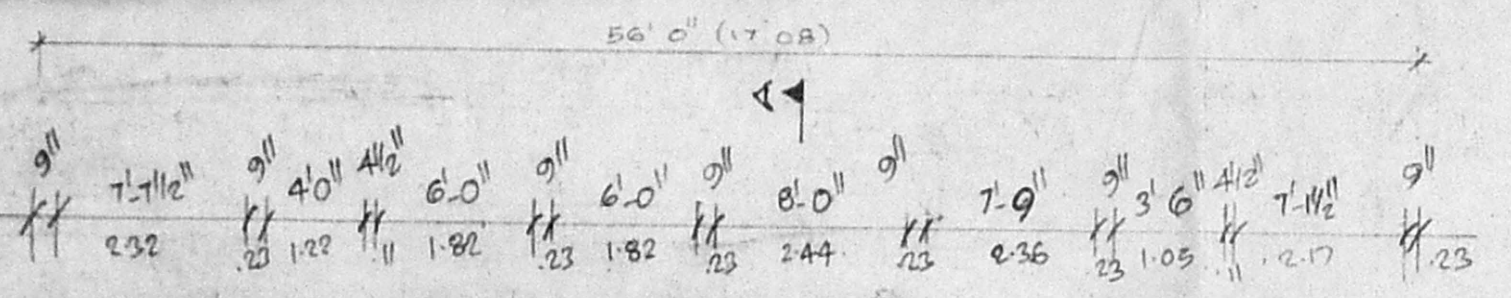 56' 0" (17 08)
A
9" 7'-7 1/2" 9" 4'0" 4 1/2" 6'-0" 9" 6'-0" 9" 8'-0" 9" 7'-9" 9" 3' 6" 4 1/2" 7'-1 1/2" 9"
2.32 .23 1.22 .11 1.82 .23 1.82 .23 2.44 .23 2.36 .23 1.05 .11 2.17 .23